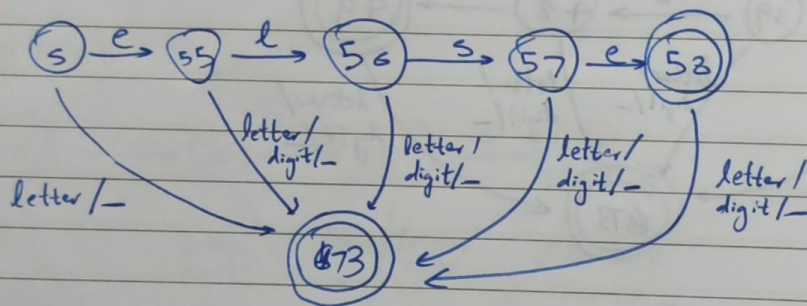 s e 55 l 56 s 57 e 58
letter/ digit/_
letter/ digit/_
letter/ digit/_
letter/ digit/_
letter/_
73